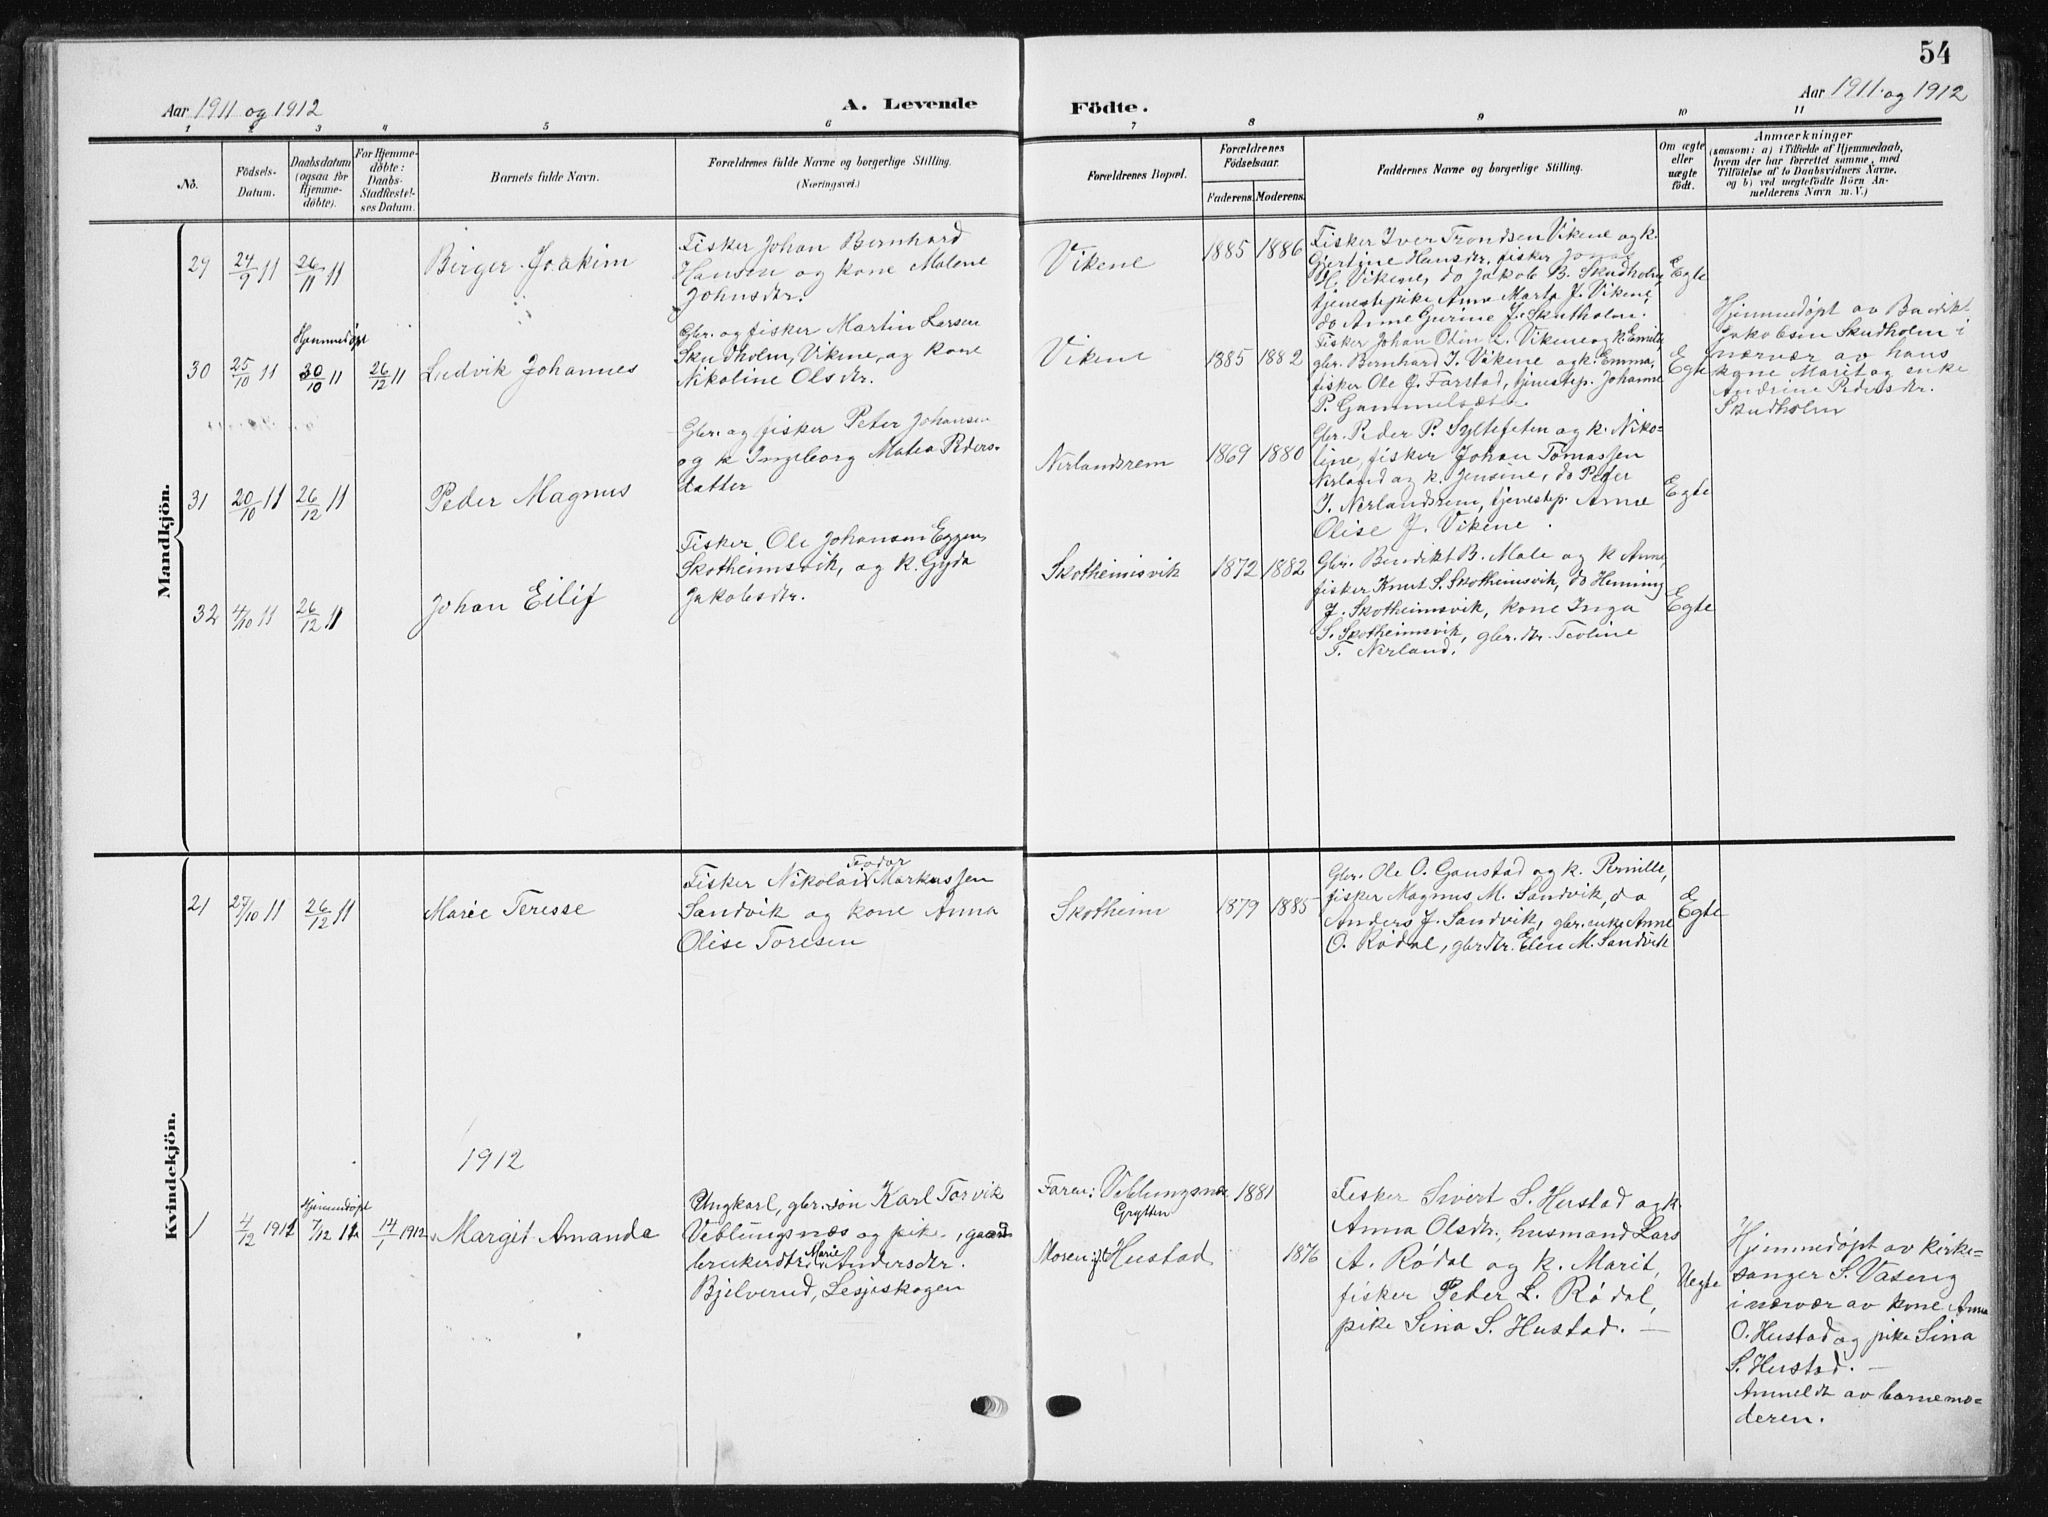 54
Aar 1911 og 1912
A. Levende Födte.
Aar 1911 og 1912
1 2 3 4 5 6 7 8 9 10 11
No.
Födsels-
Datum.
Daabsdatum
(ogsaa for
Hjemme-
döbte).
For Hjemme-
döbte:
Daabs-
Stadfæstel-
ses Datum.
Barnets fulde Navn.
Forældrenes fulde Navne og borgerlige Stilling.
(Næringsvei.)
Forældrenes Bopæl.
Forældrenes
Födselsaar.
Faderens. Moderens.
Faddernes Navne og borgerlige Stilling.
Om ægte
eller
uægte
födt.
Anmærkninger
(saasom: a) i Tilfælde af Hjemmedaab,
hvem der har forrettet samme, med
Tilföielse af to Daabsvidners Navne.
og b) ved uægtefödte Börn An-
melderens Navn m. V.)
Mandkjön.
29 24/9 11 26/11 11 Birger Joakim
Fisker Johan Bernhard
Hansen og kone Malene
Johnsdtr.
Vikene 1885 1886
Fisker Iver Trondsen Vikene og k.
Gjertine Hansdtr. fisker Jonas
H. Vikene, do Jakob B. Skudholm,
tjenestepike Anna Marta J. Vikene,
do Anne Gurine J. Skutholm.
Egte
Hjemmedøpt
30 25/10 11 30/10 11 26/12 11 Ludvik Johannes
Gbr. og fisker Martin Larsen
Skudholm, Vikene, og kone
Nikoline Olsdtr.
Vikene 1885 1882
Fisker Johan Odin L. Vikene og k. Emilie,
gbr. Bernhard I. Vikene og k. Emma,
fisker Ole J. Farstad, tjenestep. Johanne
P. Gammelsæter
Egte
Hjemmedøpt av Bendikt
Jakobsen Skudholm i
nærvær av hans
kone Marit og enke
Andrine Pedersdtr.
Skudholm
31 20/10 11 26/12 11 Peder Magnus
Gbr. og fisker Peter Johansen
og k Ingeborg Matea Peders-
datter
Nerlandsrem 1869 1880
Gbr. Peder P. Syltefeten og k. Niko-
line, fisker Johan Tomassen
Nerland og k. Jensine, do Peder
J. Nerlandsrem, tjenestep. Anne
Olise J. Vikene.
Egte
32 4/10 11 26/12 11 Johan Eilif
Fisker Ole Johansen Eggen,
Skotheimsvik, og k. Gyda
Jakobsdtr.
Skotheimsvik 1872 1882
Gbr. Bendikt B. Male og k Anne,
fisker Knut S. Skotheimsvik, do Henning
J. Skotheimsvik, kone Inga
S. Skotheimsvik, gbr. dtr. Teoline
T. Nerland.
Egte
Kvindekjön.
21 27/10 11 26/12 11 Marie Teresse
Fisker Nikolai Teodor Markussen
Sandvik og kone Anna
Olise Toresen
Skotheim 1879 1885
Gbr. Ole O. Gaustad og k. Pernille,
fisker Magnus M. Sandvik, do
Anders J. Sandvik, gbr. enke Anne
O. Rødal, gbr.dtr. Elen M. Sandvik
Egte
1912
Hjemmedøpt
1 4/12 1912 7/12 11 14/1 1912 Margit Amanda
Ungkarl, gbr. søn Karl Torvik
Veblungsnæs og pike, gaard
brukerdtr. Marie Andersdtr.
Bjelverud, Lesjeskogen
Faren: Veblungsnæs 1881
Grytten
Moren: Hustad 1876
Fisker Sivert S. Hustad og k.
Anna Olsdtr., husmand Lars
A. Rødal og k. Marit,
fisker Peder L. Rødal,
pike Sina S. Hustad.
Uegte
Hjemmedøpt av kirke-
sanger S. Vaseng
i nærvær av kone Anna
O. Hustad og pike Sina
S. Hustad.
Anmeldt av barnemo-
deren.